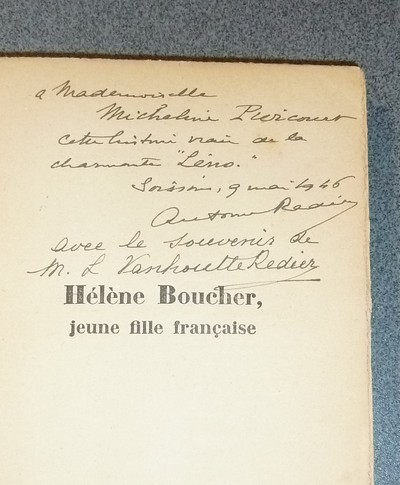 a Mademoiselle
Micheline
cette histoire vraie de la
charmante "Léno."
Soissons, 9 mai 1946
Antoine Redier
avec le souvenir de
M. L Vanhoutte Redier
Hélène Boucher,
jeune fille française